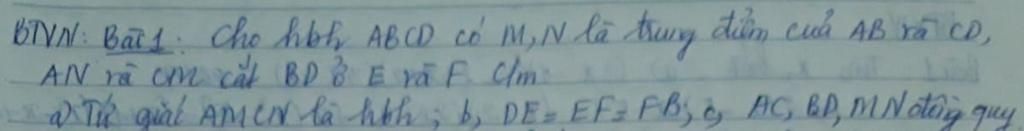 BTVN: Bài 1: Cho hbh ABCD có M, N là trung điểm của AB và CD,
AN và CM cắt BD ở E và F C/m
a) Tứ giác AMCN là hbh; b, DE = EF = FB; c, AC, BD, MN đồng quy